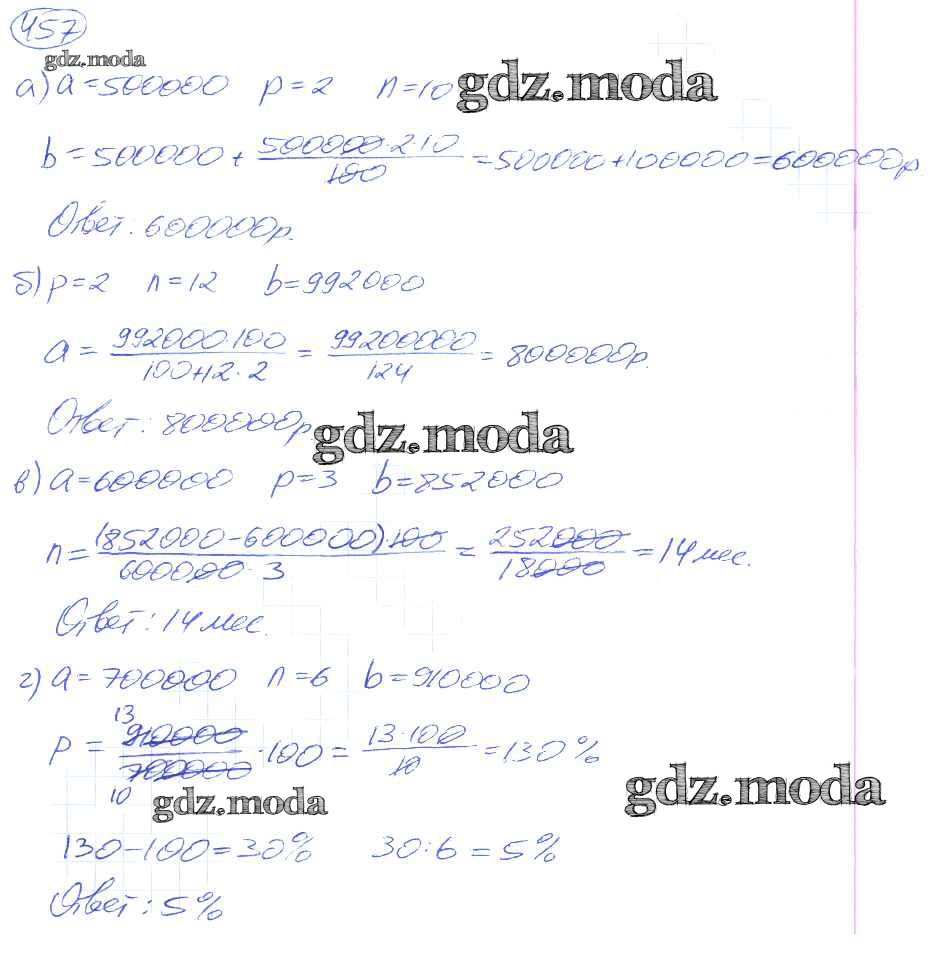 457
gdz.moda
а) a=500000 p=2 n=10 gdz.moda
b=500000+ 500000·2·10 / 100 =500000+100000=600000р.
Ответ: 600000р.
б) p=2 n=12 b=992000
a= 992000·100 / 100+12·2 = 99200000 / 124 = 800000р.
Ответ: 800000р. gdz.moda
в) a=600000 p=3 b=852000
n= (852000-600000)·100 / 600000·3 = 252000 / 18000 =14 мес.
Ответ: 14 мес.
г) a=700000 n=6 b=910000
13
p= 910000 / 700000 ·100= 13·100 / 10 =130%
10
gdz.moda gdz.moda
130-100=30% 30:6=5%
Ответ: 5%